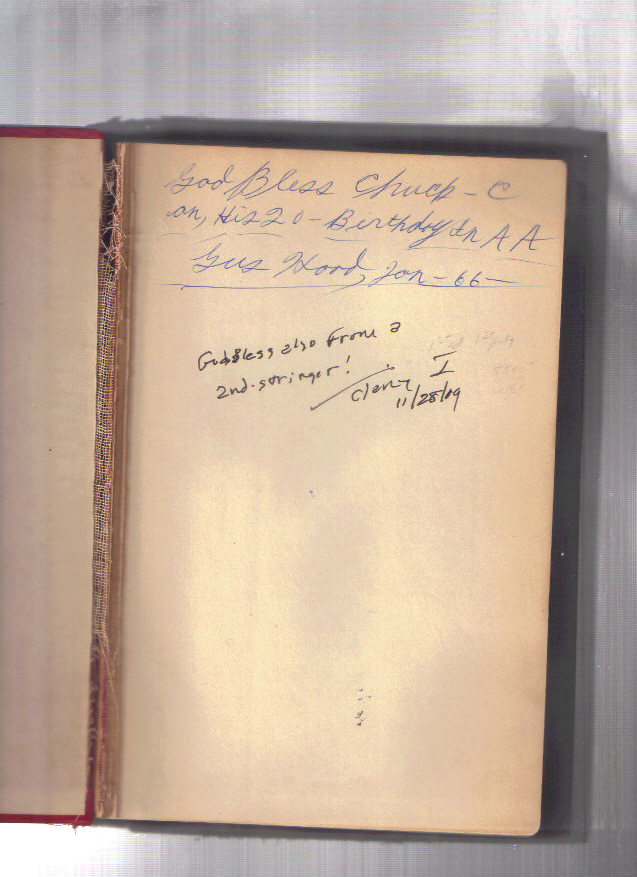 God Bless Chuck - C
on, His 20 - Birthday In A A
Gus Hood, Jan - 66 -
God Bless also from a
2nd-stringer!
Clancy I
11/28/09